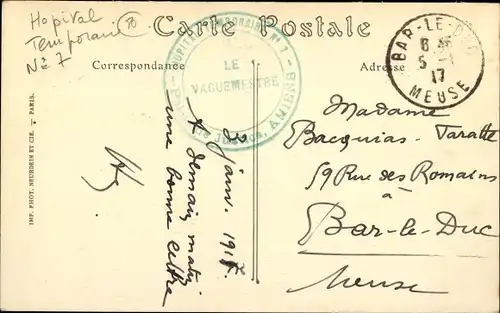 Hopital
Temporaire
Nº 7
Carte Postale
HOPITAL TEMPORAIRE Nº 7
LE
VAGUEMESTRE
AMIENS
BAR-LE-DUC
5 -1
17
MEUSE
Correspondance
Adresse
3 janv. 1917.
A demain matin
une bonne lettre
Madame
Bacquias-Taratte
59 Rue des Romains
à
Bar-le-Duc
Meuse
IMP. PHOT. NEURDEIN ET CIE. — PARIS.